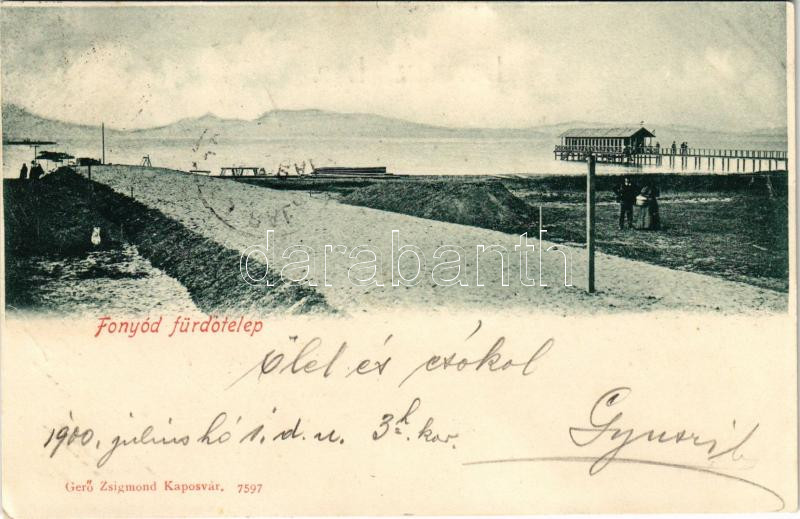 darabanth.com
Fonyód fürdőtelep
Ölel és csókol
1900. július hó 1. d. u. 3h kor.
Gyuszi
Gerő Zsigmond Kaposvár. 7597